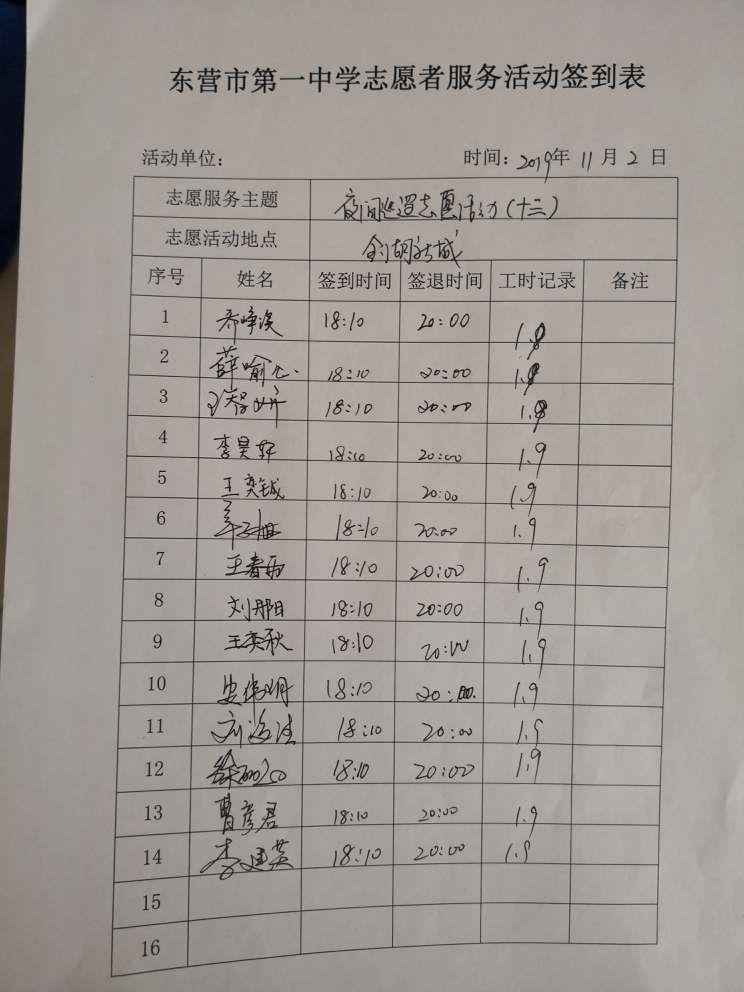 东营市第一中学志愿者服务活动签到表
活动单位: 时间: 2019年 11月 2日
志愿服务主题 夜间巡逻志愿活动(十二)
志愿活动地点
序号 姓名 签到时间 签退时间 工时记录 备注
1 18:10 20:00 1.9
2 薛喻心 18:10 20:00 1.9
3 18:10 20:00 1.9
4 李昊轩 18:10 20:00 1.9
5 王奕铖 18:10 20:00 1.9
6 18:10 20:00 1.9
7 王春雨 18:10 20:00 1.9
8 刘那日 18:10 20:00 1.9
9 王英秋 18:10 20:00 1.9
10 18:10 20:00 1.9
11 刘海洁 18:10 20:00 1.9
12 18:10 20:00 1.9
13 曹彦君 18:10 20:00 1.9
14 李建英 18:10 20:00 1.9
15
16